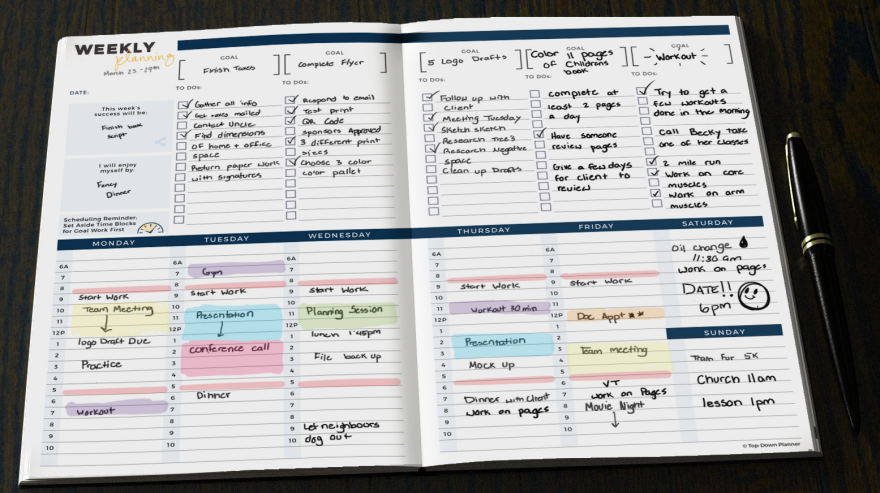 WEEKLY
planning
March 23-29th
DATE:
This week's
success will be:
Finish book
script
I will enjoy
myself by:
Fancy
Dinner
Scheduling Reminder:
Set Aside Time Blocks
for Goal Work First
GOAL
Finish Taxes
TO DOs:
Gather all info
Get taxes mailed
Contact Uncle
Find dimensions
OF home + office
space
Return paper work
with signatures
GOAL
Complete Flyer
TO DOs:
Respond to email
Test print
QR Code
sponsors Approved
3 different print
sizes
Choose 3 color
color pallet
GOAL
5 Logo Drafts
TO DOs:
Follow up with
Client
Meeting Tuesday
Sketch sketch
Research Tree's
Research Negative
space
Clean up Drafts
GOAL
Color 11 pages
of Childrens
book
TO DOs:
complete at
least 2 pages
a day
Have someone
review pages
Give a few days
for client to
review
GOAL
Workout
TO DOs:
Try to get a
few workouts
done in the morning
Call Becky take
one of her classes
2 mile run
Work on core
muscles
Work on arm
muscles
MONDAY
6A
7
8
9 Start Work
10 Team Meeting
11
12P
1 logo Draft Due
2
3 Practice
4
5
6
7 Workout
8
9
10
TUESDAY
6A
7 Gym
8
9 Start Work
10
11 Presentation
12P
1
2 conference call
3
4
5
6 Dinner
7
8
9
10
WEDNESDAY
6A
7
8
9 Start Work
10
11 Planning Session
12P
1 lunch 1:45pm
2
3 File back up
4
5
6
7
8
9 Let neighbours
10 dog out
THURSDAY
6A
7
8
9 Start Work
10
11 Workout 30 min
12P
1
2 Presentation
3
4 Mock up
5
6
7 Dinner with Client
8 work on pages
9
10
FRIDAY
6A
7
8
9 Start Work
10
11
12P Doc Appt **
1
2
3 Team meeting
4
5
6 VT
7 work on Pages
8 Movie Night
9
10
SATURDAY
Oil change
11:30 am
work on pages
DATE!!
6pm
SUNDAY
Train For 5K
Church 11am
lesson 1pm
© Top-Down Planner